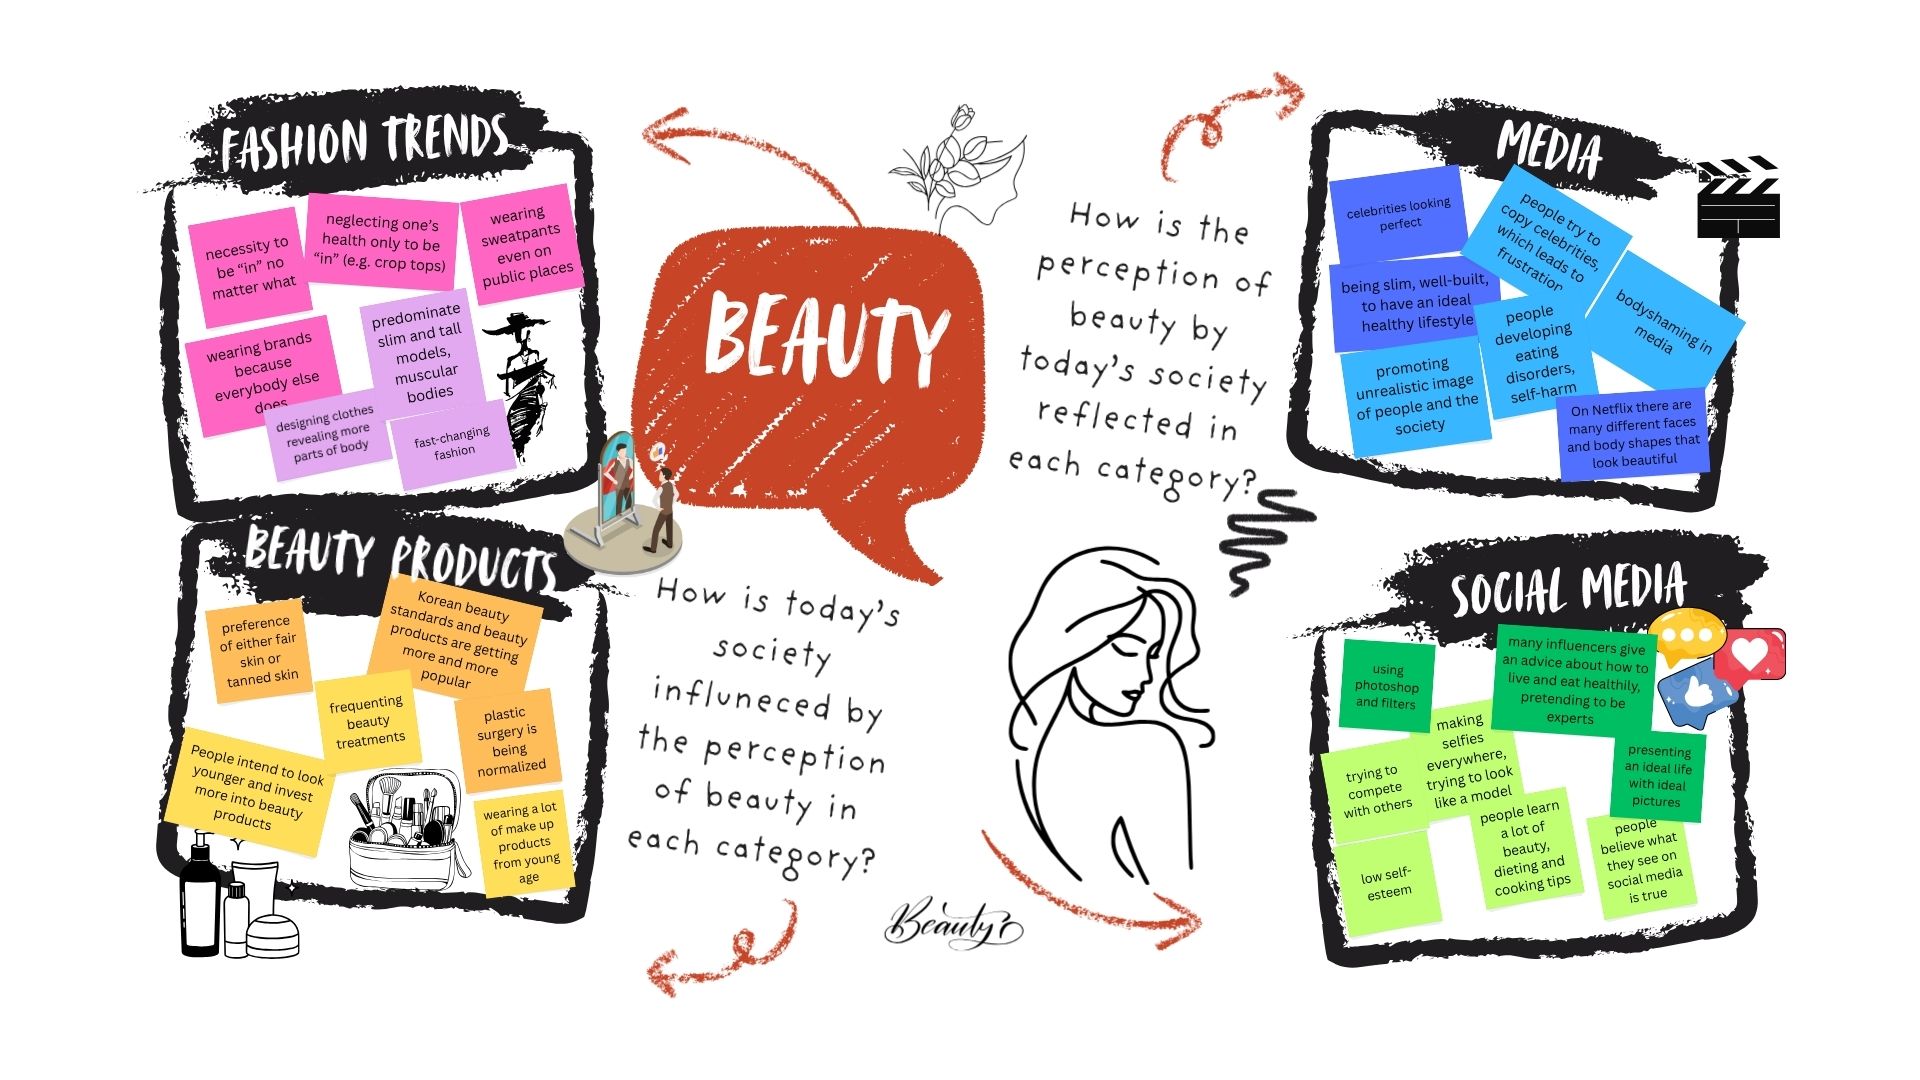 FASHION TRENDS
necessity to
be “in” no
matter what
neglecting one’s
health only to be
“in” (e.g. crop tops)
wearing
sweatpants
even on
public places
wearing brands
because
everybody else
does
predominate
slim and tall
models,
muscular
bodies
designing clothes
revealing more
parts of body
fast-changing
fashion
BEAUTY
How is the
perception of
beauty by
today’s society
reflected in
each category?
MEDIA
celebrities looking
perfect
people try to
copy celebrities,
which leads to
frustration
being slim, well-built,
to have an ideal
healthy lifestyle
bodyshaming in
media
people
developing
eating
disorders,
self-harm
promoting
unrealistic image
of people and the
society
On Netflix there are
many different faces
and body shapes that
look beautiful
BEAUTY PRODUCTS
preference
of either fair
skin or
tanned skin
Korean beauty
standards and beauty
products are getting
more and more
popular
frequenting
beauty
treatments
plastic
surgery is
being
normalized
People intend to look
younger and invest
more into beauty
products
wearing a lot
of make up
products
from young
age
How is today’s
society
influneced by
the perception
of beauty in
each category?
Beauty
SOCIAL MEDIA
using
photoshop
and filters
many influencers give
an advice about how to
live and eat healthily,
pretending to be
experts
making
selfies
everywhere,
trying to look
like a model
presenting
an ideal life
with ideal
pictures
trying to
compete
with others
people learn
a lot of
beauty,
dieting and
cooking tips
people
believe what
they see on
social media
is true
low self-
esteem